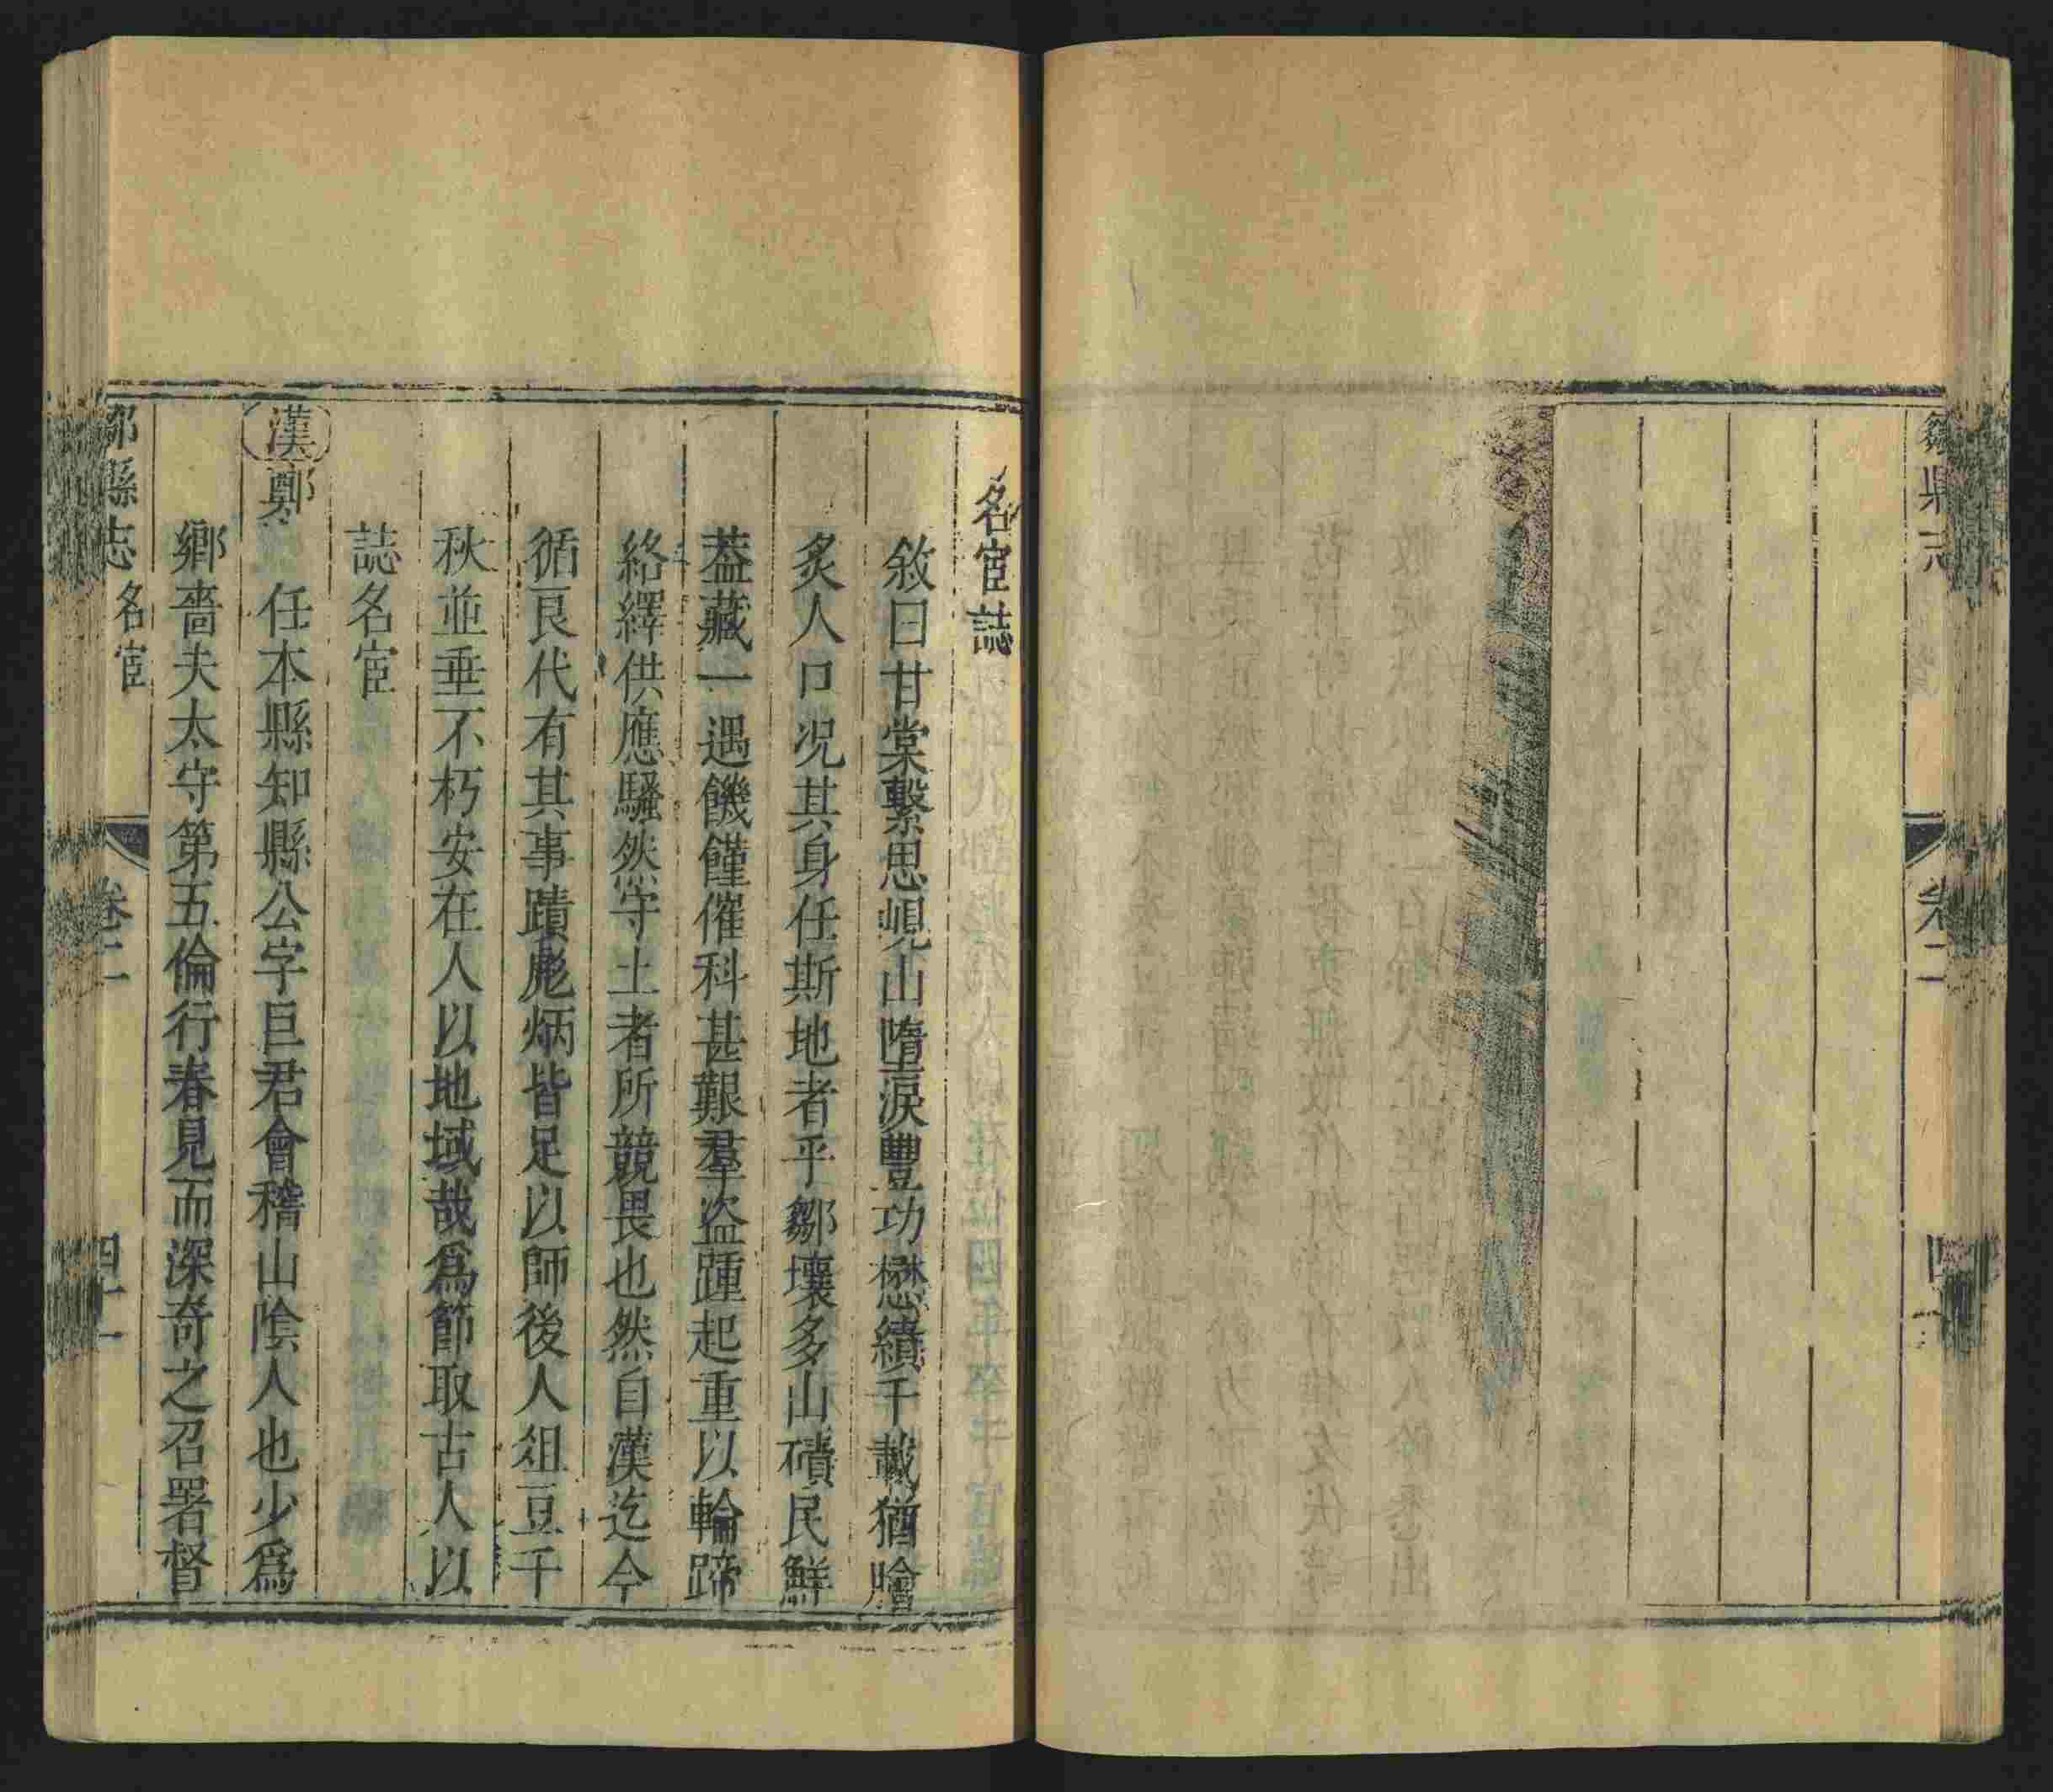 鄒縣志
卷二
名宦誌
敘曰甘棠繫思峴山墮淚豐功懋績千載猶膾
炙人口况其身任斯地者乎鄒壤多山磧民鮮
葢藏一遇饑饉催科甚艱羣盗踵起重以輪蹄
絡繹供應騷然守土者所競畏也然自漢迄今
循良代有其事蹟彪炳皆足以師後人俎豆千
秋並垂不朽安在人以地域哉爲節取古人以
誌名宦
漢鄭
任本縣知縣公字巨君會稽山陰人也少爲
鄉嗇夫太守第五倫行春見而深奇之召署督
鄒縣志
名宦
卷二
四十一